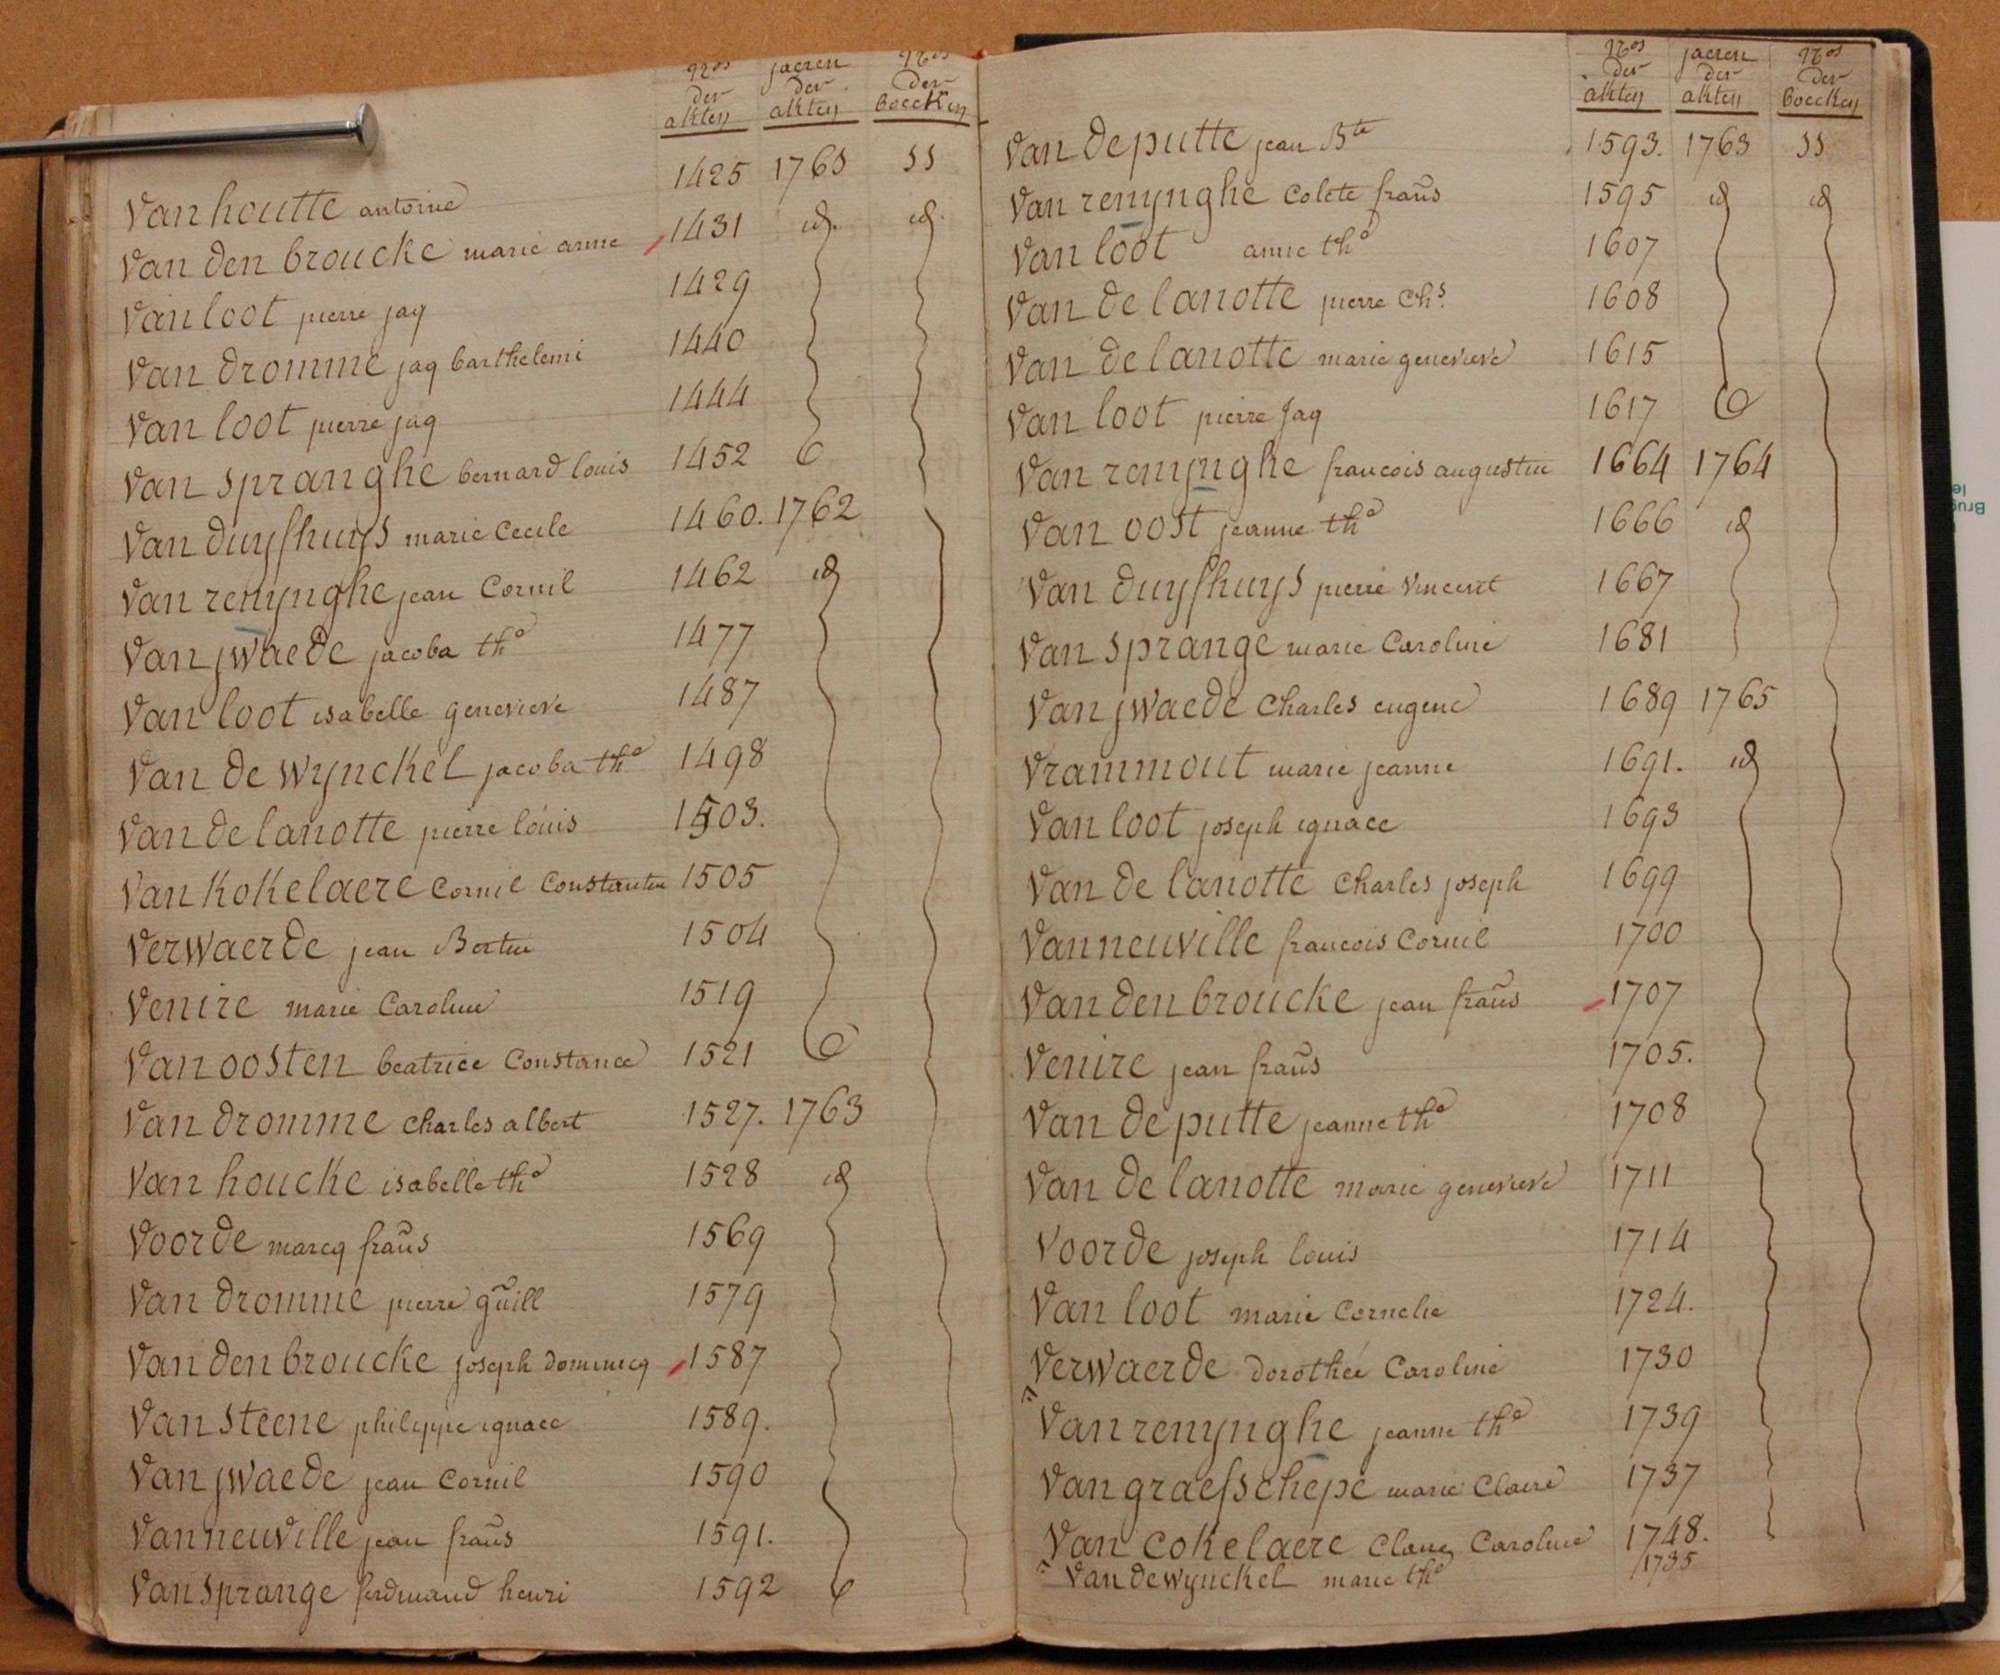 nos jaeren nos
der der der
akten akten boecken
Van houtte antoine 1425 1761 SS
Van den broucke marie anne 1431 id. id.
Van loot pierre jaq 1429
Van dromme jaq barthelemi 1440
Van loot pierre jaq 1444
Van spranghe bernard louis 1452
Van duyfhuys marie Cecile 1460. 1762
Van renynghe jean Cornil 1462 id
Van jwaede jacoba the 1477
Van loot isabelle genevieve 1487
Van de wynckel jacoba the 1498
Van de lanotte pierre louis 1503.
Van Kokelaere Cornil Constantin 1505
Verwaerde jean Bertin 1504
Venire marie Caroline 1519
Van oosten beatrice Constance 1521
Van dromme Charles albert 1527. 1763
Van houcke isabelle the 1528 id
Voorde marcq frañs 1569
Van dromme pierre guill 1579
Van den broucke joseph dominicq 1587
Van steene philippe ignace 1589.
Van jwaede jean Cornil 1590
Van neuville jean frañs 1591.
Van sprange ferdinand henri 1592
nos jaeren nos
der der der
akten akten boecken
Van de putte jean Bte 1593. 1763 SS
Van renynghe Colete frañs 1595 id id
Van loot anne the 1607
Van de lanotte pierre Chs. 1608
Van de lanotte marie genevieve 1615
Van loot pierre Jaq 1617
Van renynghe francois augustin 1664 1764
Van oost jeanne the 1666 id
Van duyfhuys pierre Vincent 1667
Van sprange marie Caroline 1681
Van jwaede Charles eugene 1689 1765
Vrammout marie jeanne 1691. id
Van loot joseph ignace 1693
Van de lanotte Charles joseph 1699
Van neuville francois Cornil 1700
Van den broucke jean frañs 1707
Venire jean frañs 1705.
Van de putte jeanne the 1708
Van de lanotte marie genevieve 1711
Voorde joseph louis 1714
Van loot marie Cornelie 1724.
Verwaerde dorothée Caroline 1730
Van renynghe jeanne the 1739
Van graefschepe marie Claire 1737
Van Cokelaere Caroline 1748.
Van de wynckel marie the 1735